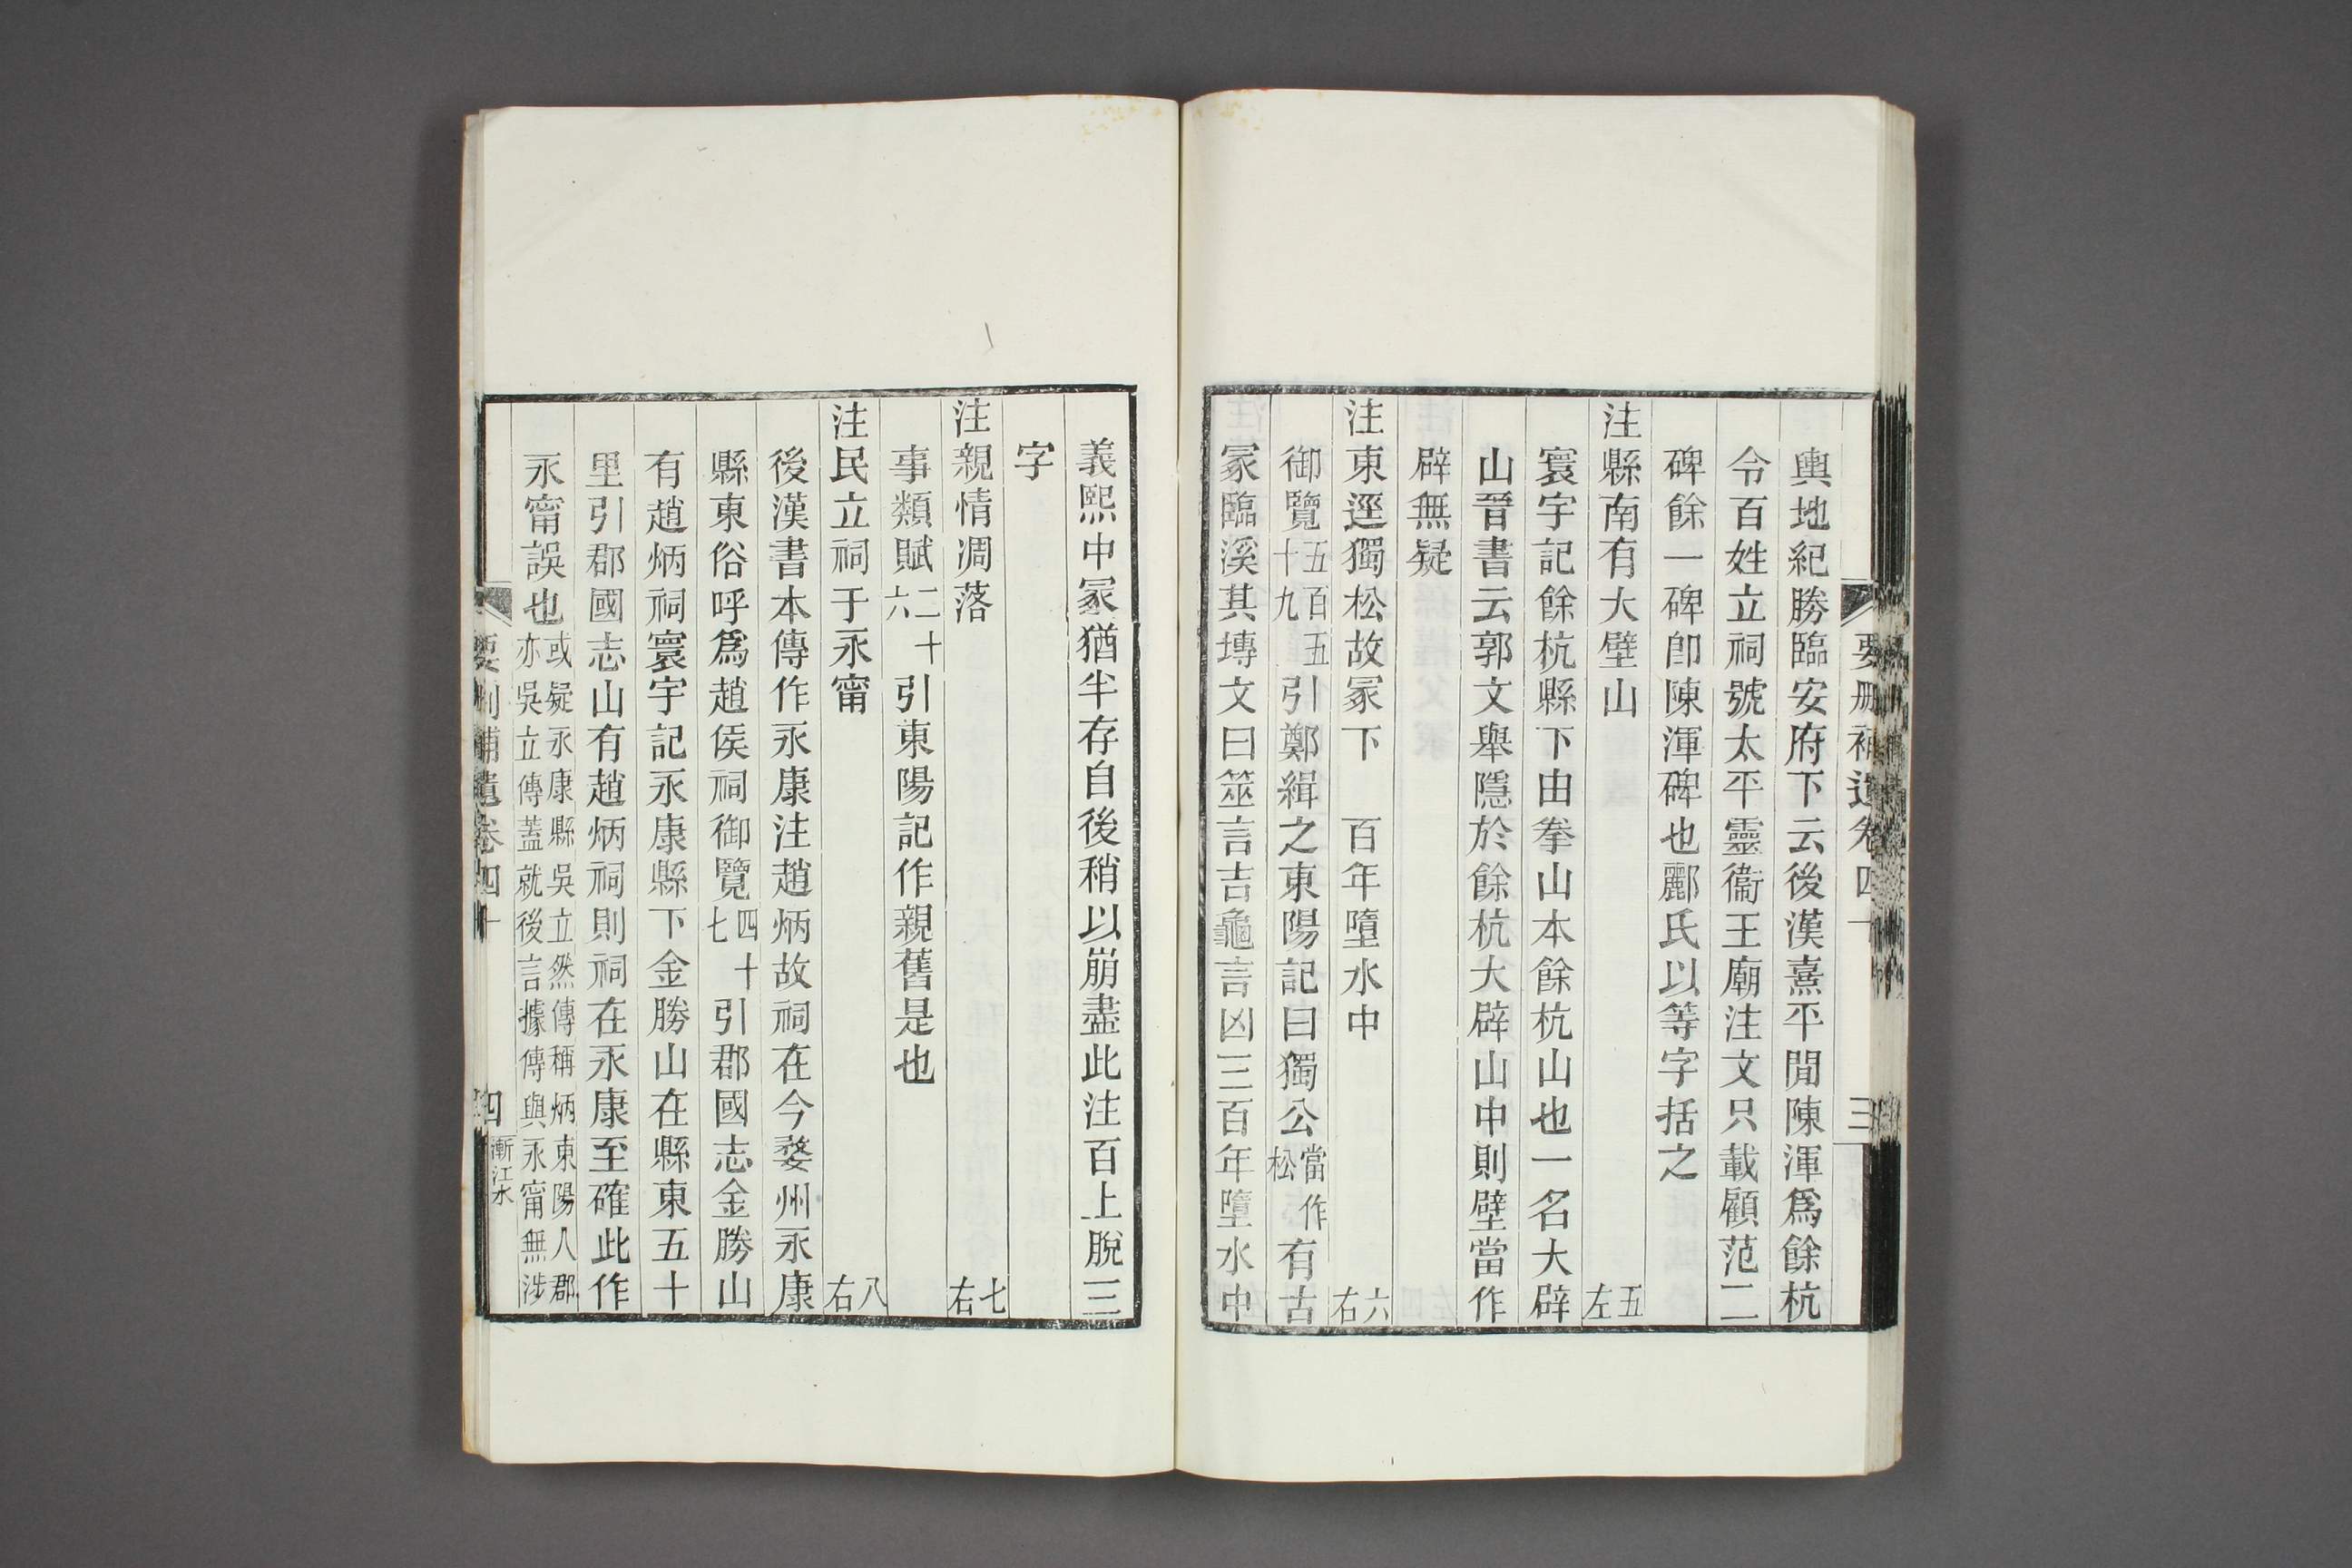 輿地紀勝臨安府下云後漢熹平閒陳渾爲餘杭
令百姓立祠號太平靈衞王廟注文只載顧范二
碑餘一碑卽陳渾碑也酈氏以等字括之
注縣南有大壁山 五左
寰宇記餘杭縣下由拳山本餘杭山也一名大辟
山晉書云郭文舉隱於餘杭大辟山中則壁當作
辟無疑
注東逕獨松故冢下 百年墮水中 六右
御覽五百五十九引鄭緝之東陽記曰獨公當作松有古
冢臨溪其塼文曰筮言吉龜言凶三百年墮水中
要刪補遺卷四十 三
義熙中冢猶半存自後稍以崩盡此注百上脫三
字
注親情凋落 七右
事類賦二十六引東陽記作親舊是也
注民立祠于永甯 八右
後漢書本傳作永康注趙炳故祠在今婺州永康
縣東俗呼爲趙侯祠御覽四十七引郡國志金勝山
有趙炳祠寰宇記永康縣下金勝山在縣東五十
里引郡國志山有趙炳祠則祠在永康至確此作
永甯誤也或疑永康縣吳立然傳稱炳東陽人郡亦吳立傳蓋就後言據傳與永甯無涉
要刪補遺卷四十 四 漸江水